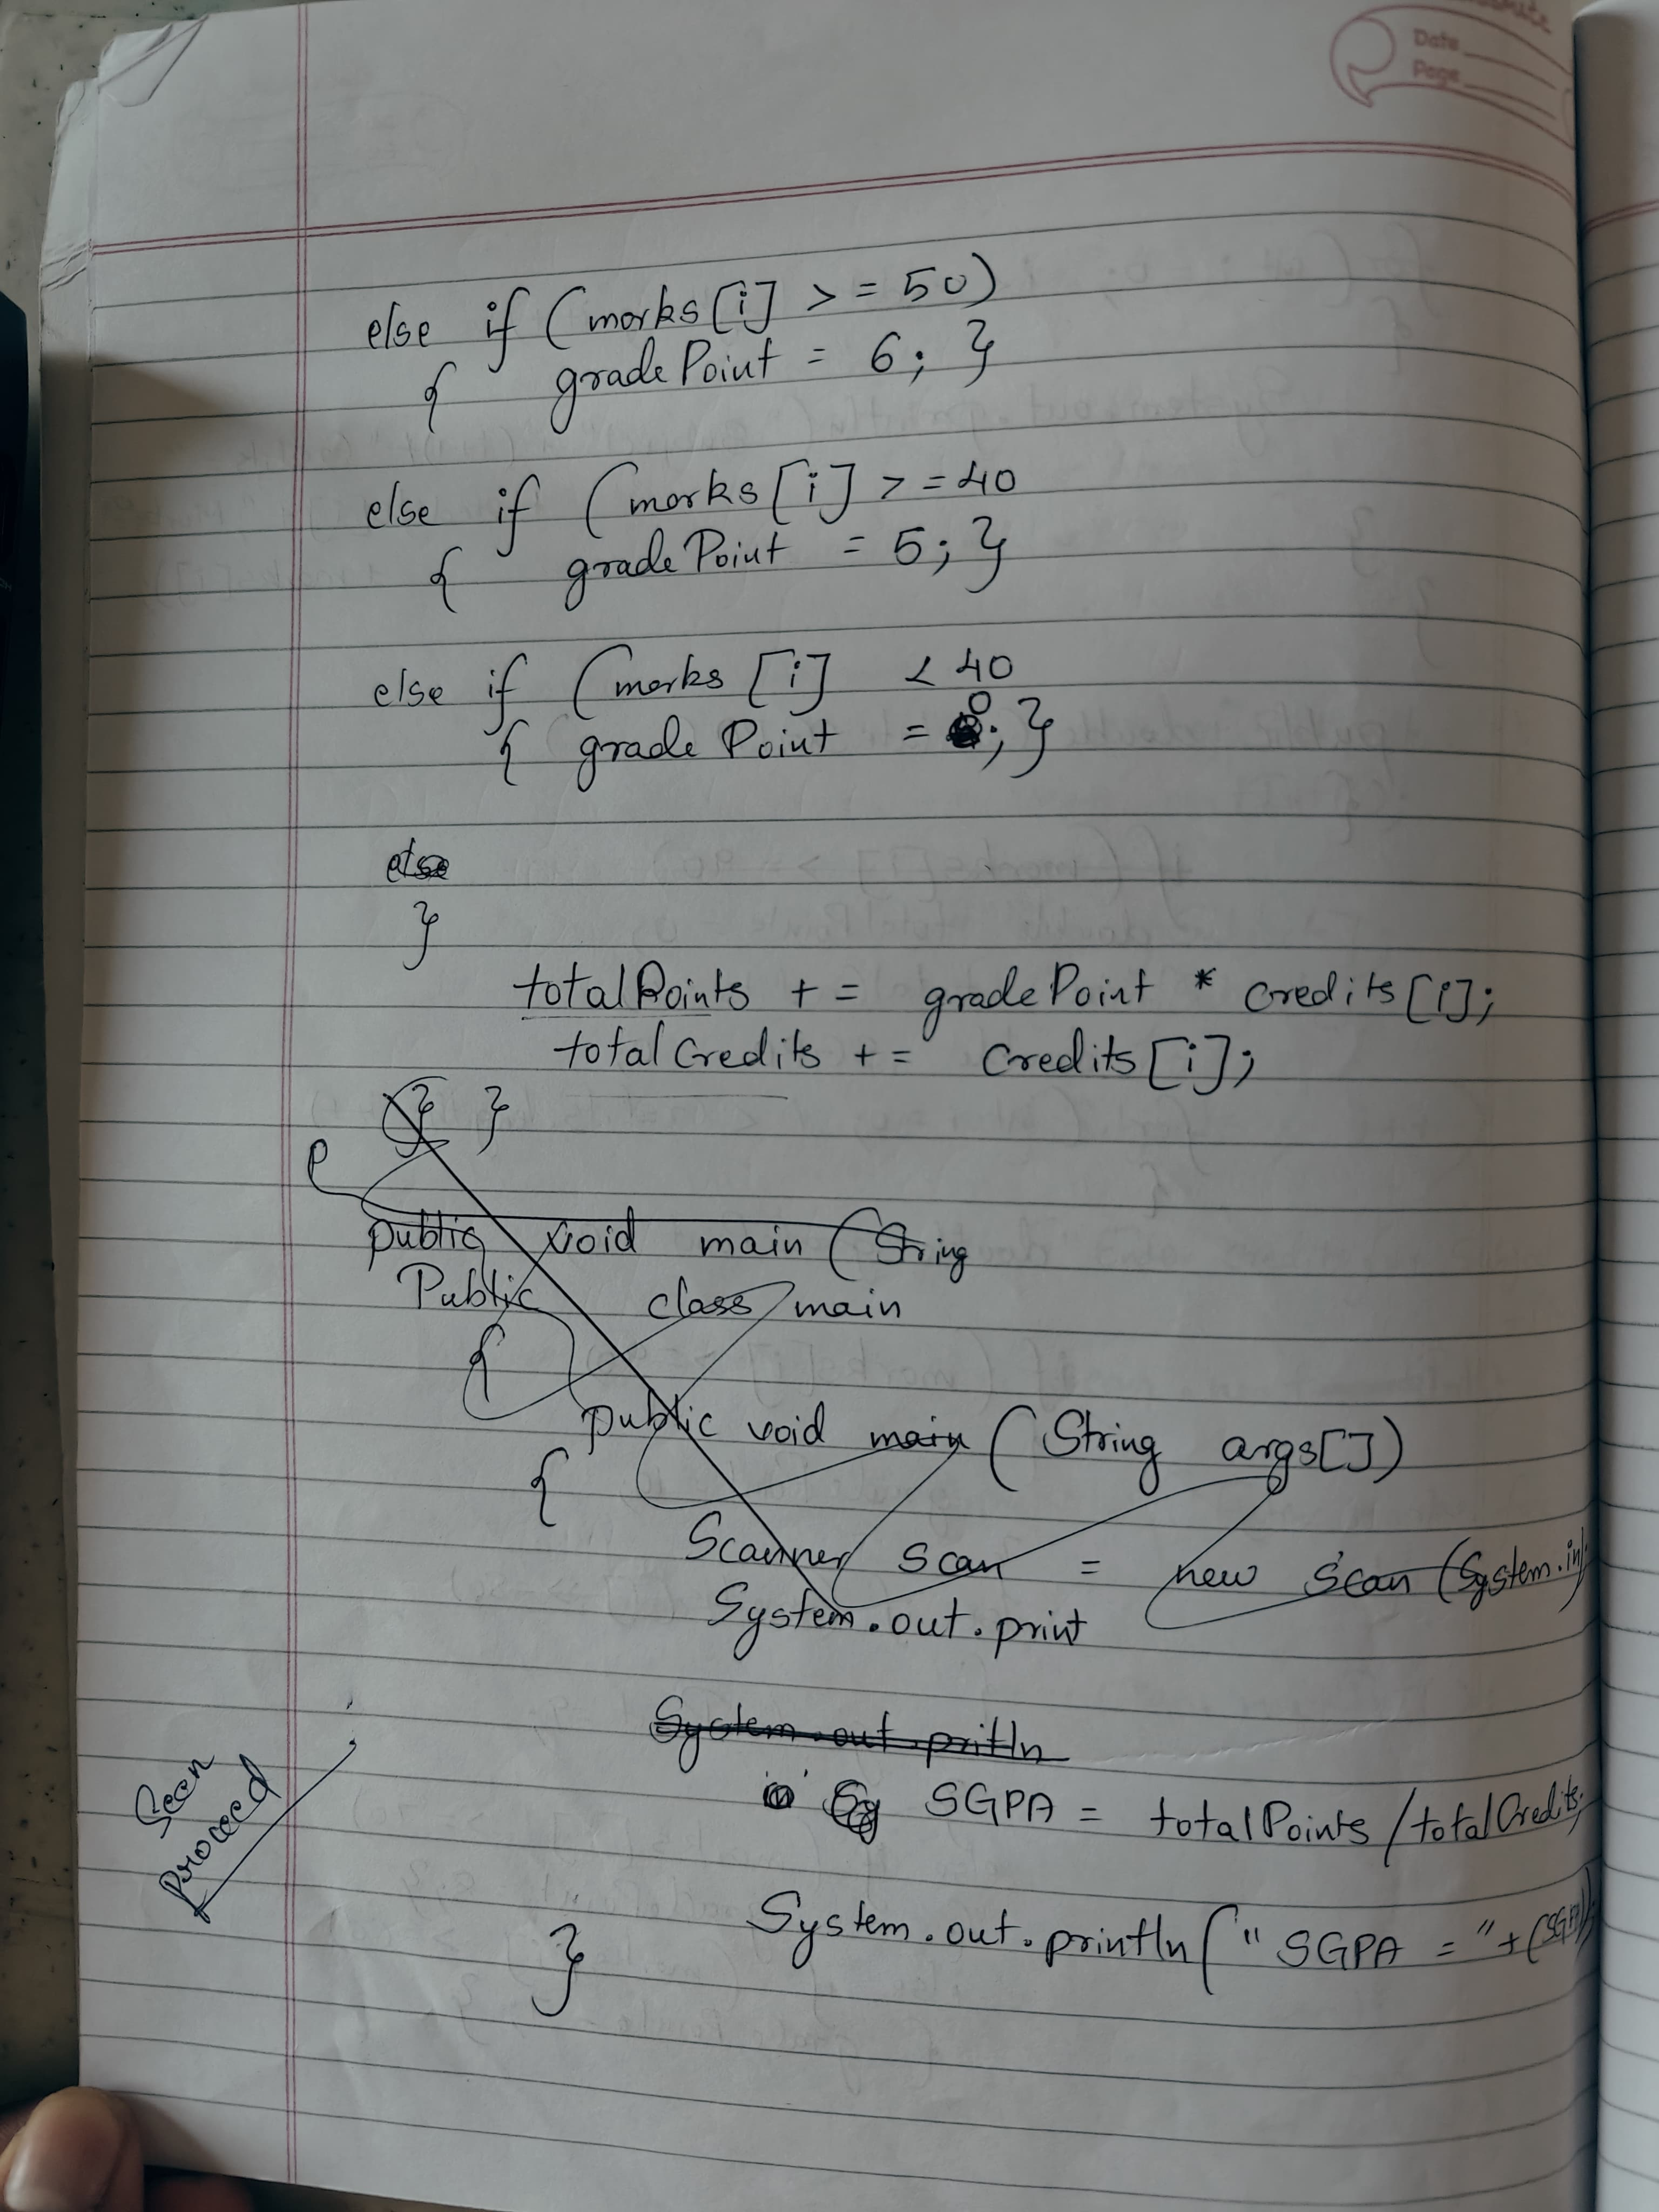 Date
Page
else if (marks[i] >= 50)
{ gradePoint = 6; }
else if (marks[i] >= 40
{ gradePoint = 5; }
else if (marks [i] < 40
0
{ grade Point = ; }
else
}
totalPoints += gradePoint * credits[i];
totalCredits += credits[i];
} }
P
public void main (String
Public class main
{
public void main (String args[])
{
Scanner scan = new scan (System.in);
System.out.print
System.out.pritln
SGPA = totalPoints/totalCredits;
System.out.println(" SGPA = "+(SGPA));
}
Seen
Proceed